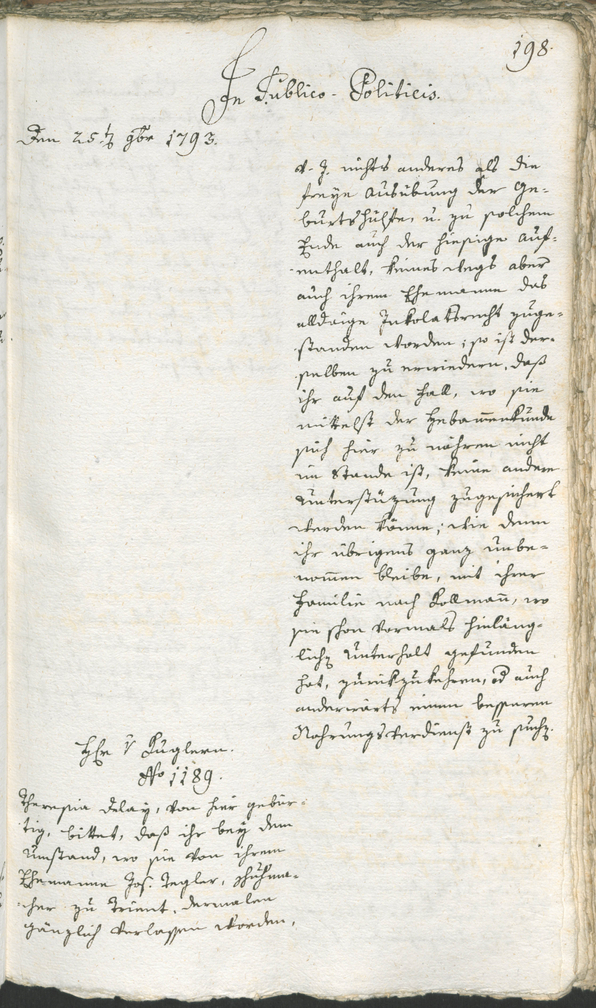 198.
In Publico-Politicis.
Den 25t 9br 1793.
v. J. nichts anderes als die
freye Ausübung der Ge-
burtshülfe, u. zu solchem
Ende auch der hiesige Auf-
enthalt, keines wegs aber
auch ihrem Ehemanne das
alldaige Inkolatsrecht zuge-
standen worden; so ist der-
selben zu erwiedern, daß
ihr auf den Fall, wo sie
mittelst der Hebammenkunde
sich hier zu nähren nicht
im Stande ist, keine andere
Unterstüzung zugesichert
werden könne; wie dann
ihr übrigens ganz unbe-
nommen bleibe, mit ihrer
Familie nach Kollmann, wo
sie schon vormals hinläng-
lichen Unterhalt gefunden
hat, zurükzukehren, od auch
anderwärts einen besseren
Nahrungsverdienst zu suchen.
Hr v Kuglern.
No 1189.
Theresia Delay, von hier gebür-
tig, bittet, daß ihr bey dem
Umstand, wo sie von ihrem
Ehemanne Jos. Tegler, Schuhma-
cher zu Trient, dermalen
gänzlich verlassen worden,